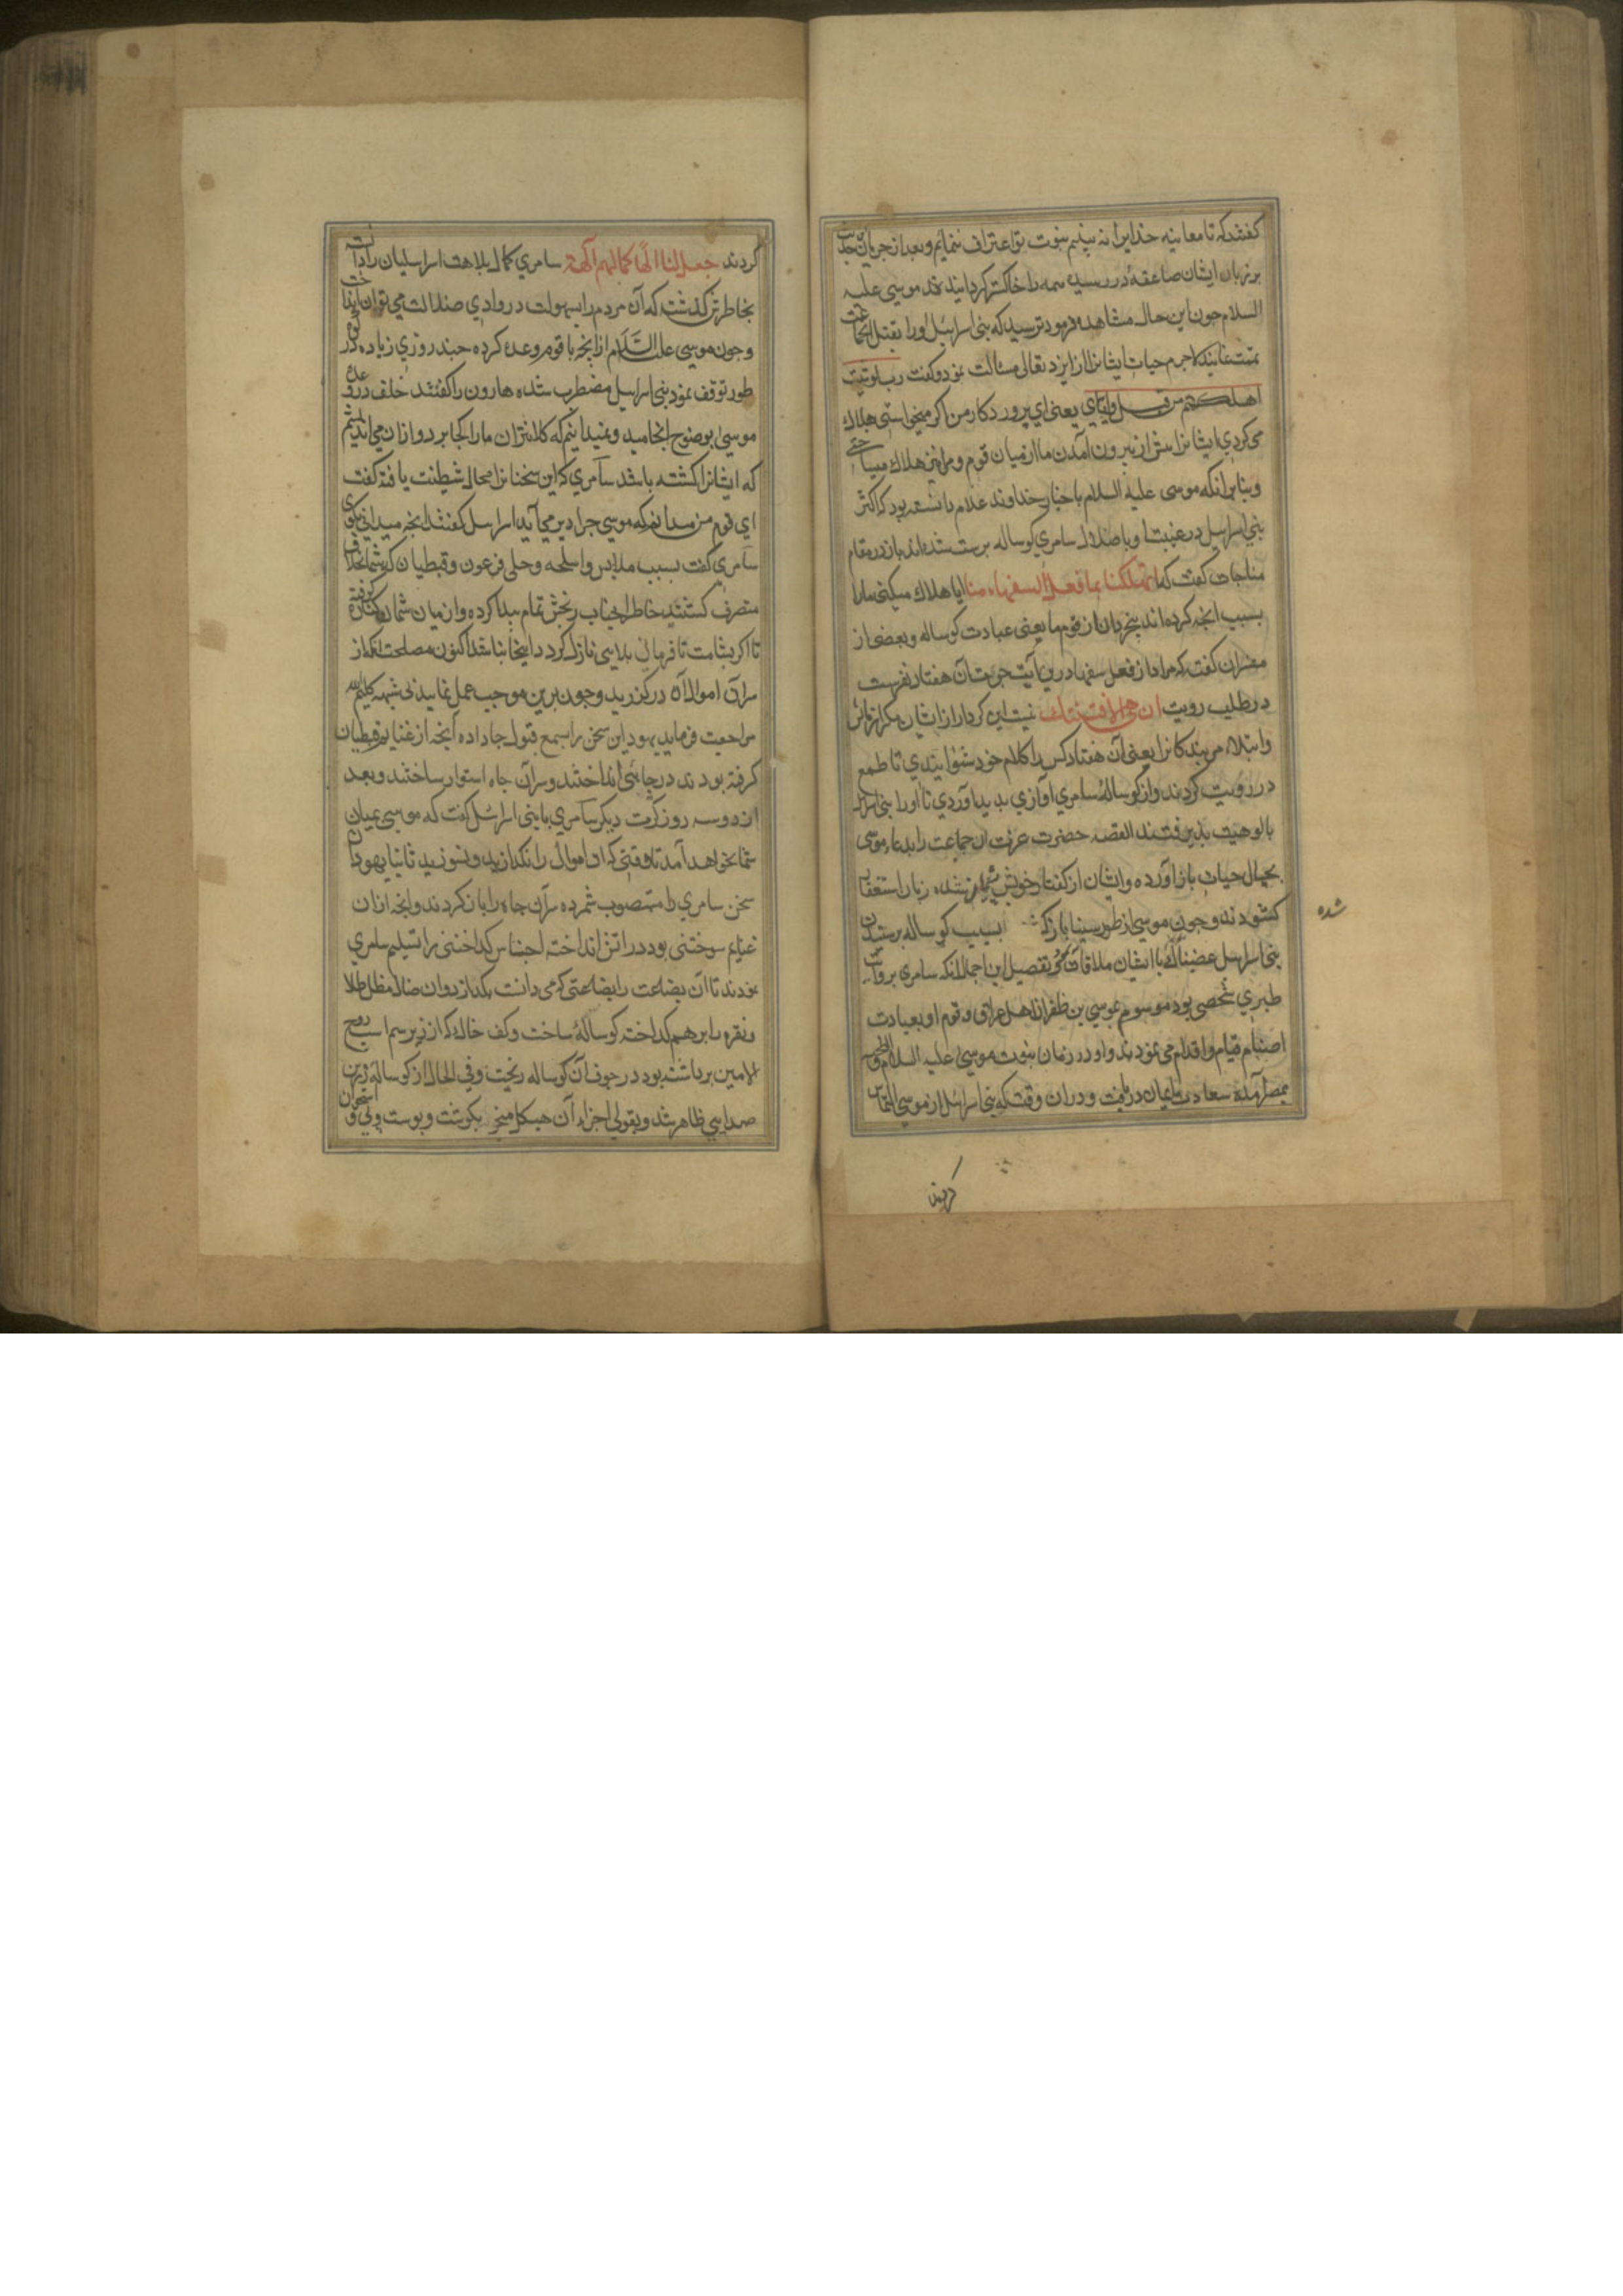 گفتند که تا معاینه خدایرا نه بینیم بنبوت تو اعتراف ننمایم و بعد از جریان این حدیث
بر زبان ایشان صاعقهٔ در رسیده همه را خاکستر گردانید موسی علیه
السلام چون این حال مشاهده فرمود ترسید که بنی اسرائیل اورا بقتل انجماعت
تهمت نمایند لاجرم حیات ایشانرا از ایزد تعالی مسألت نمود و گفت رب لو شئت
اهلکتهم من قبل وایای یعنی ای پروردکار من اگر میخواستی هلاک
می کردی ایشانرا پیش از بیرون آمدن ما از میان قوم و مرا نیز هلاک میساختی
و بنابرانکه موسی علیه السلام باخبار خداوند علام دانسته بود که اکثر
بنی اسرائیل در غیبت او باضلال سامری کوساله پرست شده اند باز در مقام
مناجات گفت که اتهلکنا بما فعل السفهاء منا ایا هلاک میکنی مارا
بسبب انچه کرده اند بیخردان از قوم ما یعنی عبادت کوساله و بعضی از
مفسران گفته که مراد از فعل سفها درین آیت جرءت آن هفتاد نفرست
در طلب رویت ان هی الا فتنتک نیست این کردار از ایشان مکر ازمایش
وابتلاء مر بندکانرا یعنی آن هفتاد کس را کلام خود شنوانیدی تا طمع
در رؤیت کردند و از کوسالهٔ سامری آوازی پدید آوردی تا اورا بنی اسرائیل
بالوهیت پذیرفتند القصه حضرت عزت ان جماعت را بدعاء موسی
بحال حیات باز آورده وایشان از کفتار خویش پشیمان شده زبان استغفار
کشودند و چون موسی از طور سینا باز کشت بسبب کوساله پرستیدن
شده
بنی اسرائیل غضبناک با ایشان ملاقات کرد تفصیل این اجمال انکه سامری بروایت
طبری شخصی بود موسوم بموسی بن ظفر از اهل عراق و قوم او بعبادت
اصنام قیام و اقدام می نمودند و او در زمان نبوت موسی علیه السلام
بمصر آمده سعادت ایمان دریافت و دران وقت که بنی اسرائیل از موسی التماس
کردند
کردند جعل لنا الهًا کما لهم آلهة سامری کمال بلاهت اسرائیلیان را دانسته
بخاطرش گذشت که آن مردم را بسهولت در وادی ضلالت می توان انداخت
و چون موسی علیه السَّلَام از انچه با قوم وعده کرده چند روزی زیاده در کوه
طور توقف نمود بنی اسرائیل مضطرب شده هارون را گفتند خلف وعدهٔ
موسی بوضوح انجامید و نمیدانیم که کلانتران مارا کجا برد و ازان می اندیشیم
که ایشانرا کشته باشد سامری که این سخنانرا مجال شیطنت یافته گفت
ای قوم من میدانم که موسی چرا دیر می آید اسرائیل گفتند انچه میدانی بگوی
سامری گفت بسبب ملابس و اسلحه و حلی فرعون و قبطیان که شما بخلاف
متصرف گشتید خاطر انجناب رنجش تمام پیدا کرده و از میان شما کناره گرفته
تا اگر بشامت نافرمانی بلایی نازل گردد اینجا نباشد اکنون مصلحت انکه از
سر آن اموالآن درگذرید و چون برین موجب عمل نمایید بی شبهه کلیم الله
مراجعت فرماید یهود این سخن را بسمع قبول جا داده آنچه از غنایم قبطیان
گرفته بودند در چاهی انداختند و سر آن چاه استوار ساختند و بعد
از دو سه روز کرت دیگر سامری با بنی اسرائیل گفت که موسی بمیان
شما نخواهد آمد تا وقتی که آن اموال را نگدازید و نسوزید ثانیا یهودان
سخن سامری را مستصوب شمرده سرآن چاه را باز کردند و انچه ازان
غنایم سوختنی بود در اتش انداخته اجناس گداختنی را تسلیم سامری
نمودند تا آن بضاعت را بصناعتی که می دانست بگدازد و ان ضال مظل طلا
ونقره را برهم گداخته کوسالهٔ ساخت و کف خاک که از زیر سم اسب روح
الامین برداشته بود در جوف آن کوساله ریخت و فی الحال از کوساله زرین
صدایی ظاهر شد و بقولی اجزاء آن هیکل منجر بگوشت و پوست و پی و استخوان